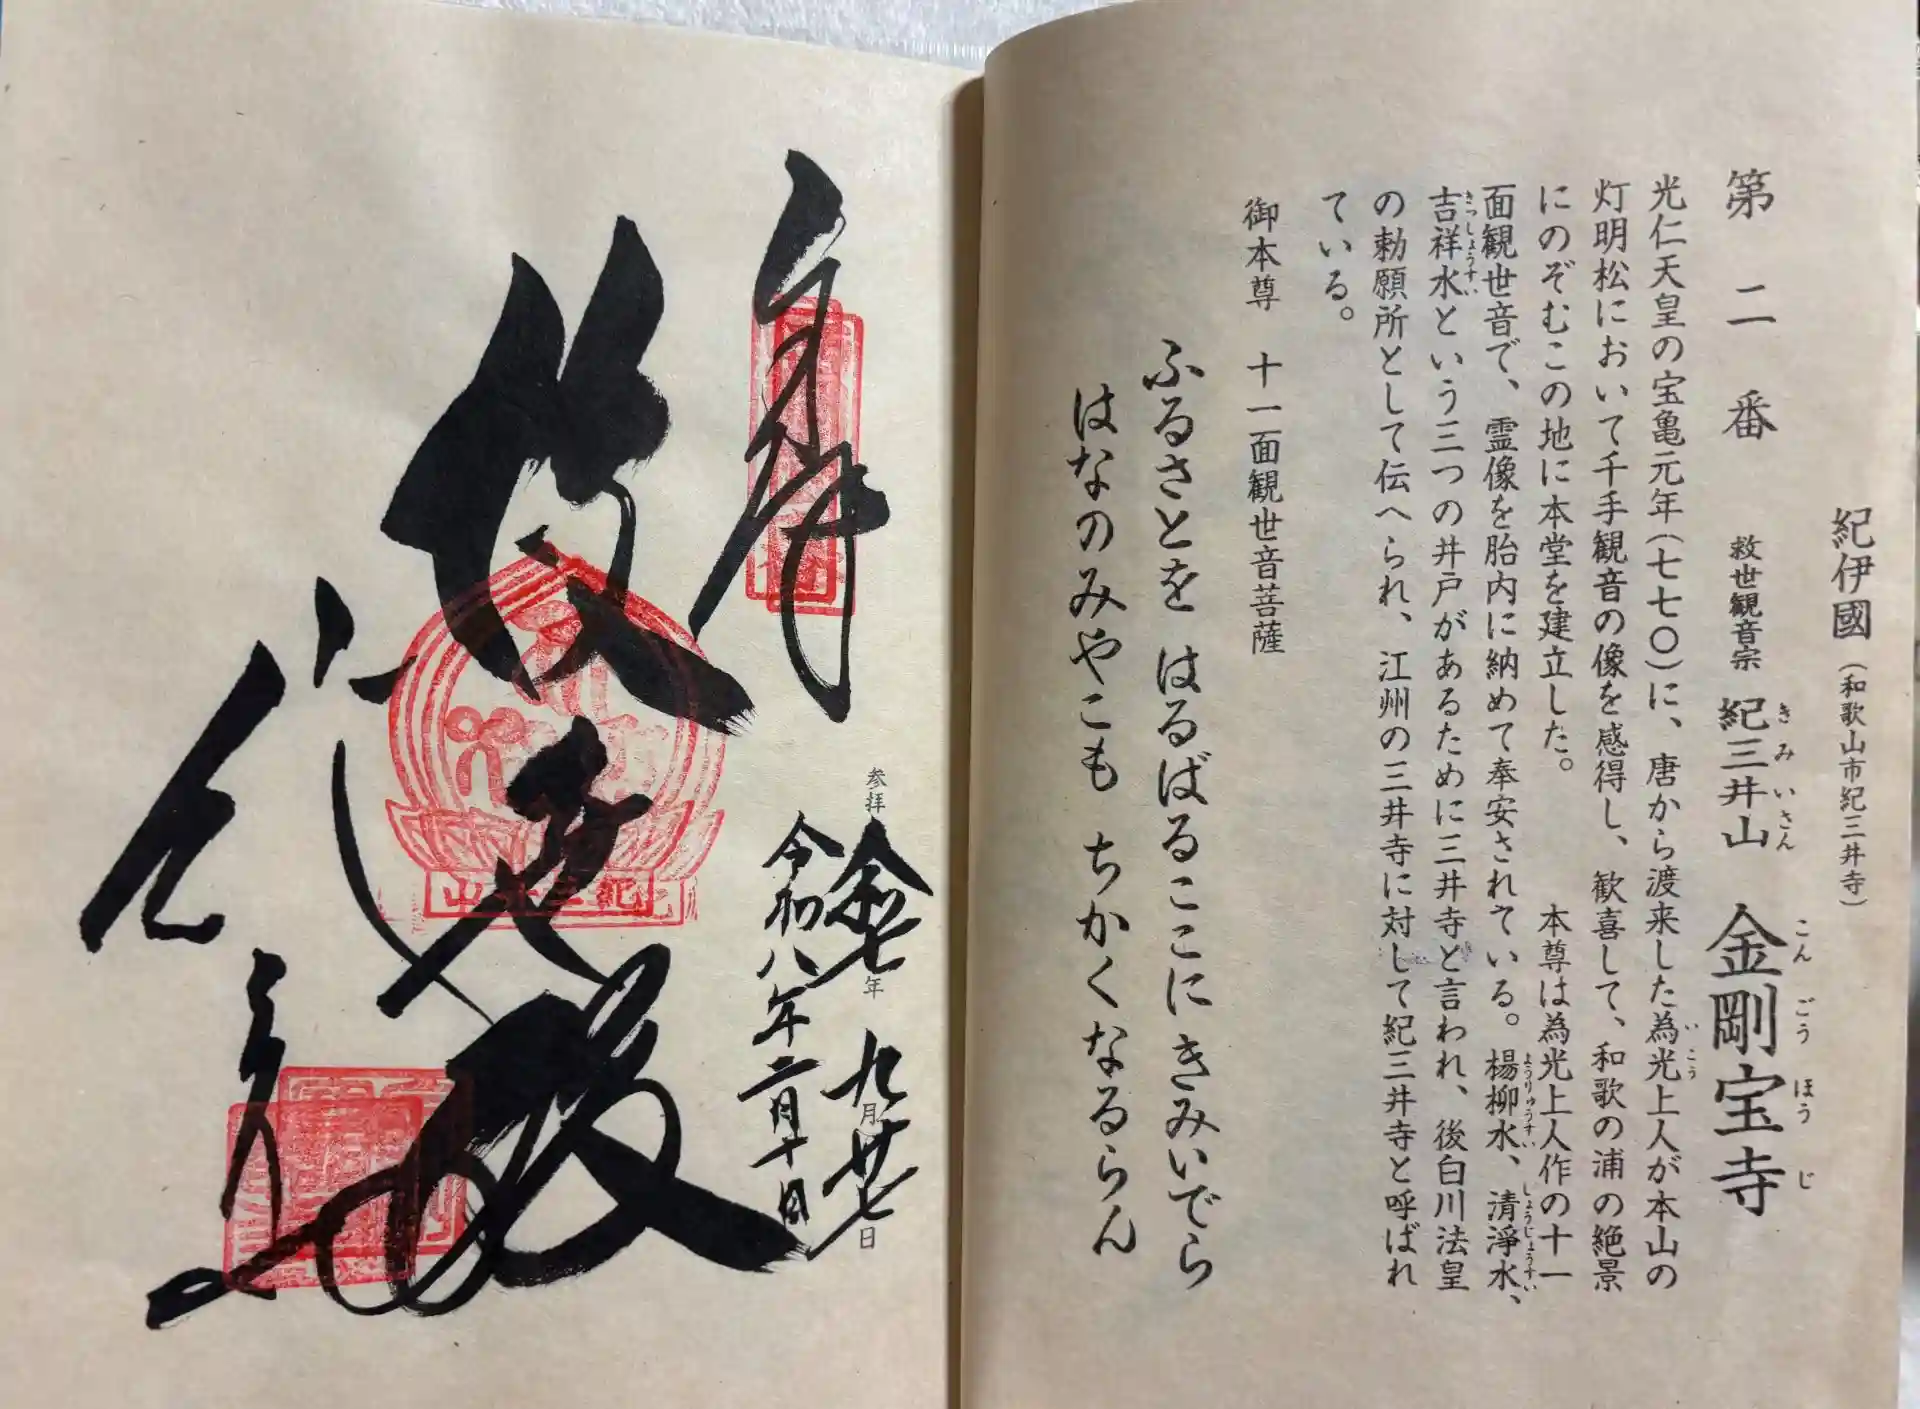 紀伊國（和歌山市紀三井寺）
第二番 救世観音宗 紀三井山 金剛宝寺
きみいさん こんごうほうじ
光仁天皇の宝亀元年（七七〇）に、唐から渡来した為光上人が本山の
いこう
灯明松において千手観音の像を感得し、歓喜して、和歌の浦の絶景
にのぞむこの地に本堂を建立した。 本尊は為光上人作の十一
面観世音で、霊像を胎内に納めて奉安されている。楊柳水、清淨水、
ようりゅうすい しょうじょうすい
吉祥水という三つの井戸があるために三井寺と言われ、後白川法皇
きっしょうすい
の勅願所として伝へられ、江州の三井寺に対して紀三井寺と呼ばれ
ている。
御本尊 十一面観世音菩薩
ふるさとを はるばるここにきみいでら
はなのみやこも ちかくなるらん
参拝 年 九月廿七日
令和八年二月十日
紀三井山